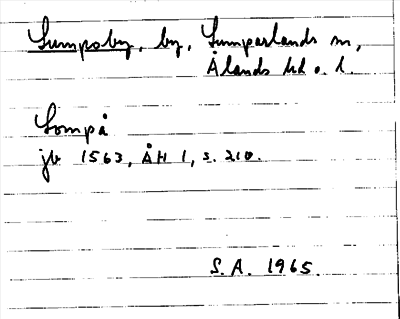 Lumpoby, by, Lumparlands sn,
Ålands hd o. l.
Lompå
jb 1563, ÅH 1, s. 210.
S.A. 1965.